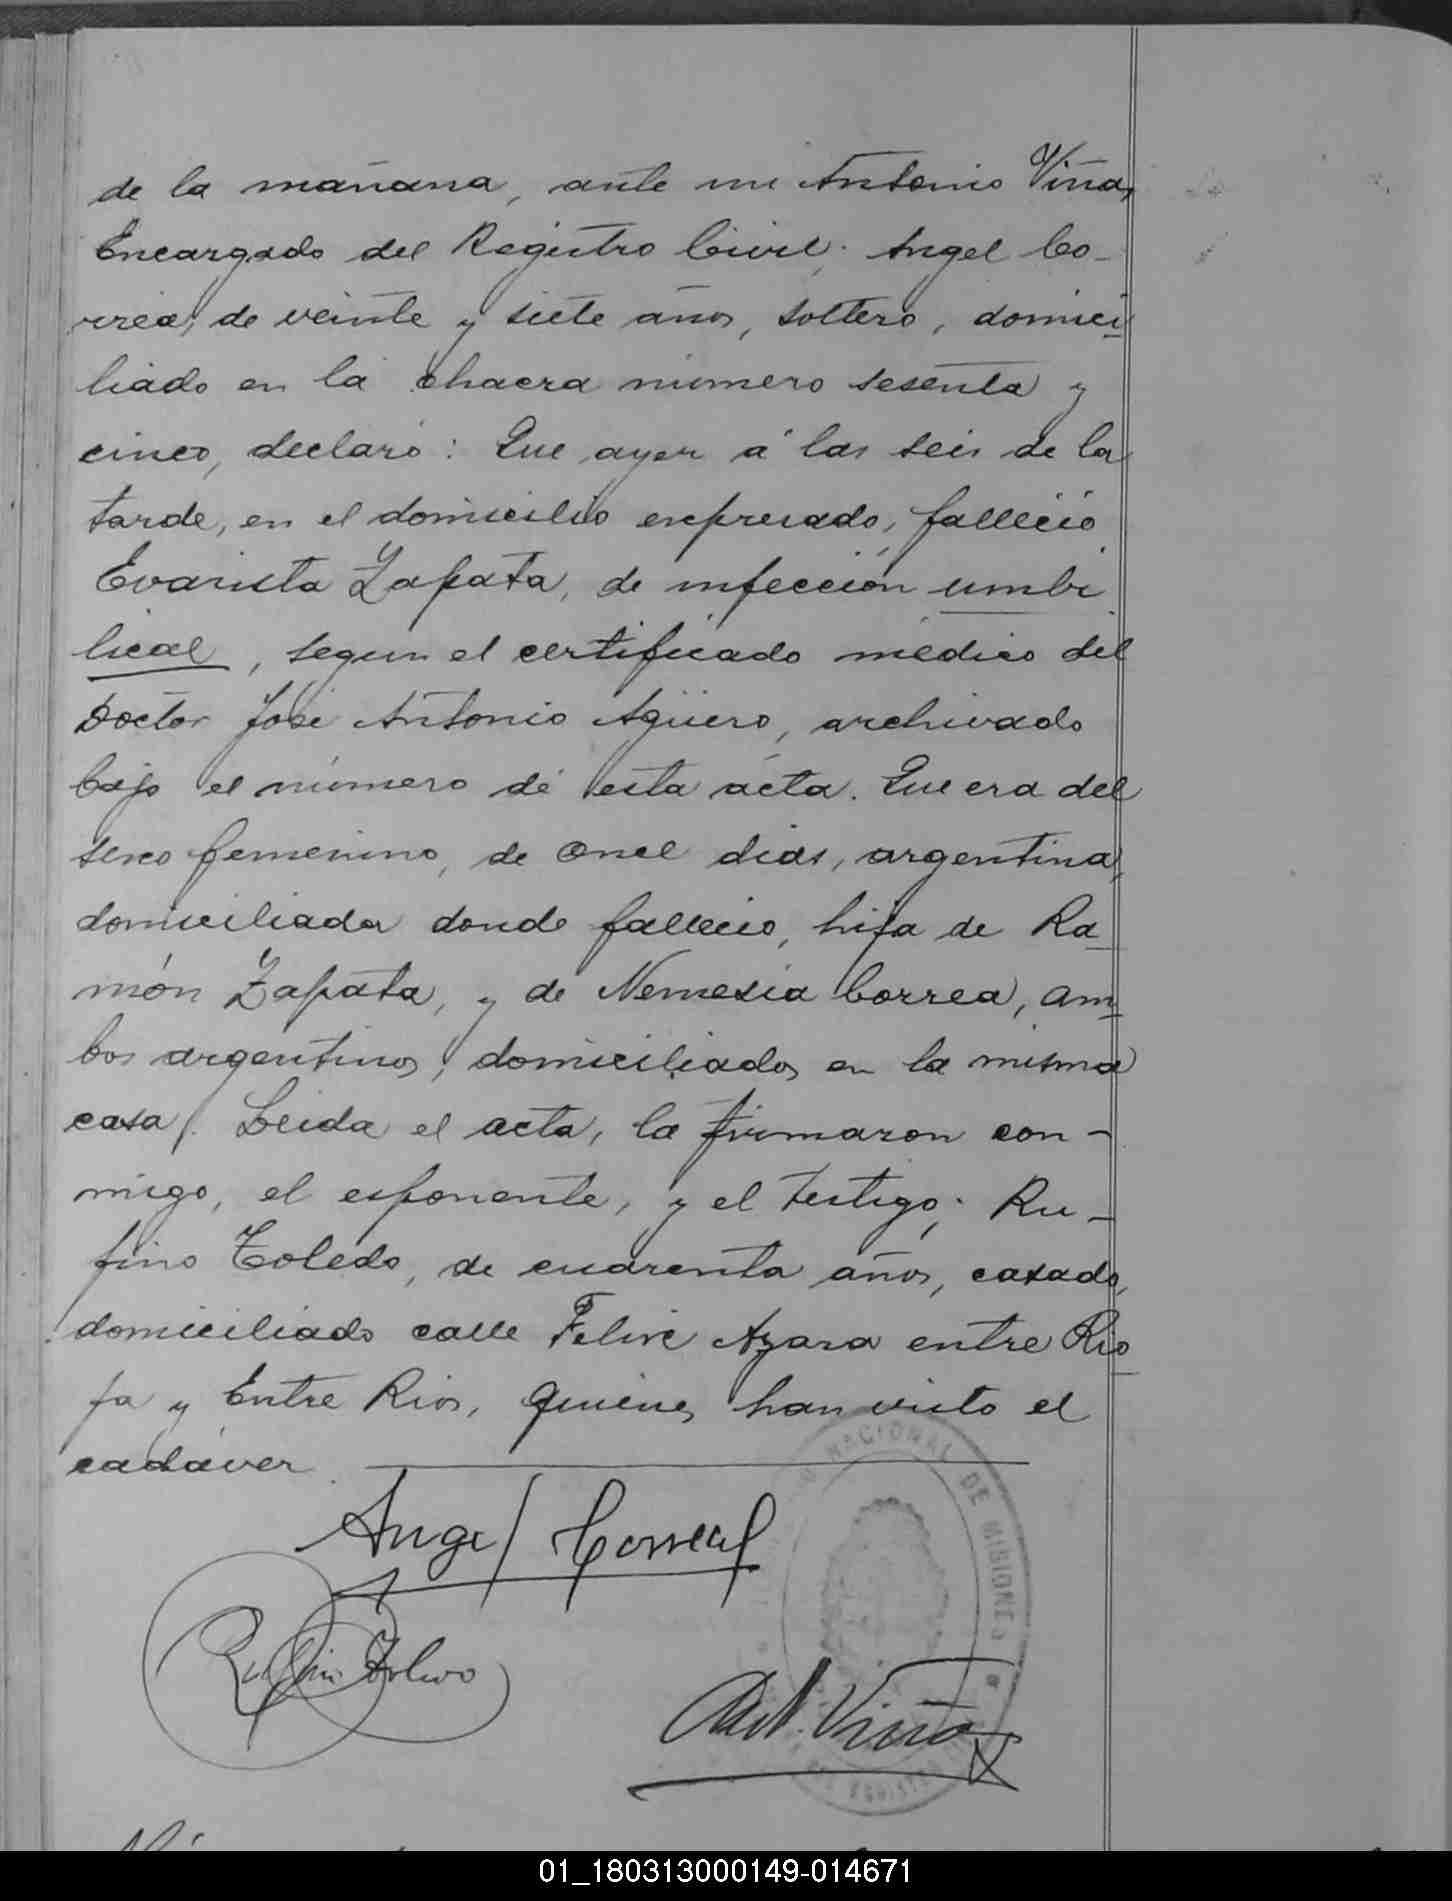 de la mañana, ante mi Antonio Viña,
Encargado del Registro Civil; Angel Co-
rrea, de veinte y siete años, soltero, domici
liado en la chacra número sesenta y
cinco, declaró: Que ayer á las seis de la
tarde, en el domicilio expresado, falleció
Evarista Zapata, de infección umbi
lical, segun el certificado médico del
Doctor José Antonio Agüero, archivado
bajo el número de esta acta. Que era del
sexo femenino, de once dias, argentina,
domiciliada donde falleció, hija de Ra
món Zapata, y de Nemesia Correa, am
bos argentinos, domiciliados en la misma
casa. Leida el acta, la firmaron con-
migo, el esponente, y el testigo; Ru-
fino Toledo, de cuarenta años, casado,
domiciliado calle Felix Azara entre Rio
ja y Entre Rios, quienes han visto el
cadáver.
Angel Correa
Rufino Toledo
Ant. Viña
NACIONAL DE MISIONES
01_180313000149-014671